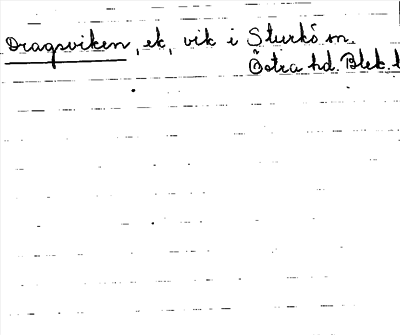 Dragsviken, ek, vik i Sturkö sn.
Östra hd. Blek. l